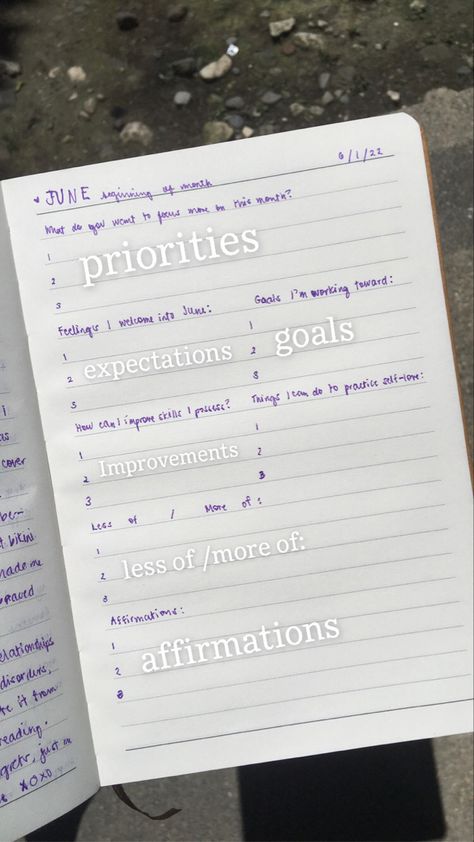 JUNE beginning of month 6/1/22
What do you want to focus more on this month?
1
2 priorities
3
Feelings I welcome into June: Goals I'm working toward:
1 1
2 expectations 2 goals
3 3
How can I improve skills I possess? Things I can do to practice self-love:
1 1
2 Improvements 2
3 3
Less of / More of :
1
2 less of /more of:
3
Affirmations:
1
2 affirmations
3
cover
bikini
made me
relationships
disorders,
it from
reading.
just
XOXO